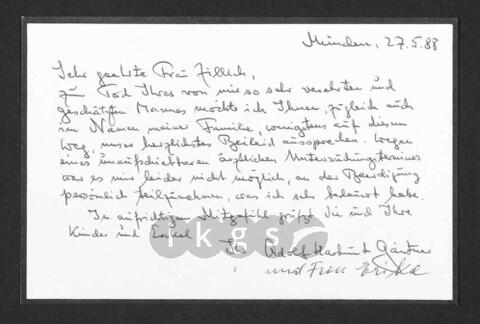 München, 27.5.88
Sehr geehrte Frau Zillich,
zum Tod Ihres von mir so sehr verehrten und
geschätzten Mannes möchte ich Ihnen, zugleich auch
im Namen meiner Familie, wenigstens auf diesem
Weg, unser herzlichstes Beileid aussprechen. Wegen
eines unaufschiebbaren ärztlichen Untersuchungstermines
war es mir leider nicht möglich, an der Beerdigung
persönlich teilzunehmen, was ich sehr bedauert habe.
In aufrichtigem Mitgefühl grüßt Sie und Ihre
Kinder und Enkel
ikgs
Ihr Adolf Hartmut Gärtner
und Frau Erika